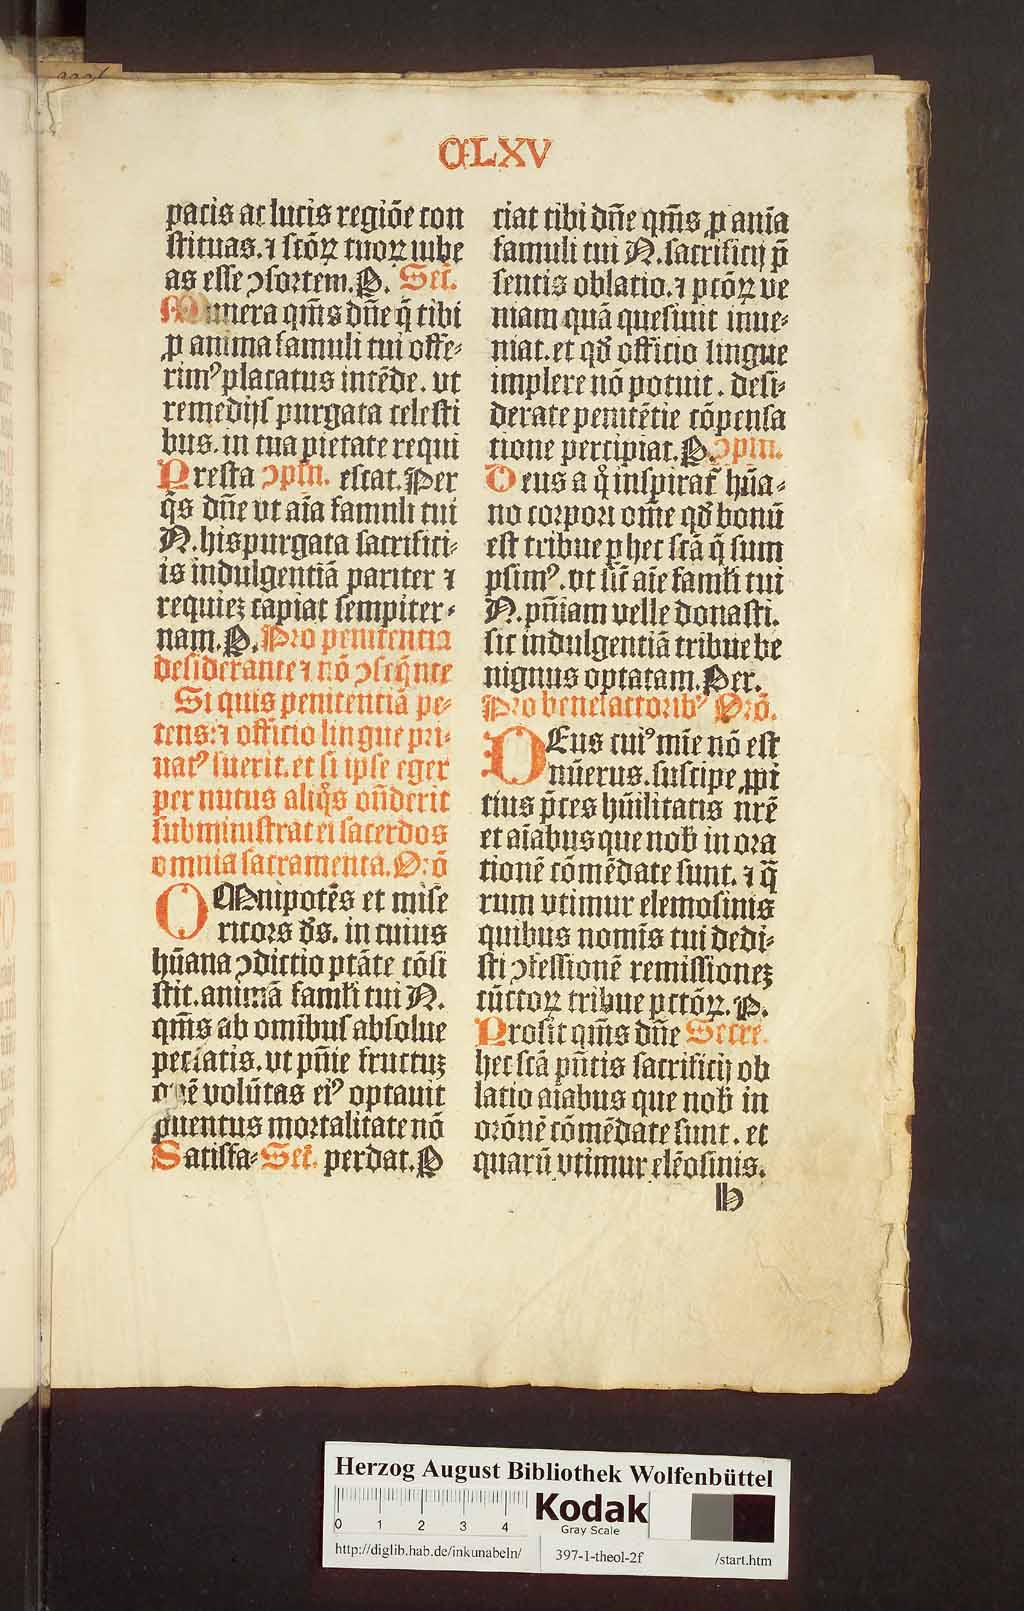 CLXV
pacis ac lucis regiõe con
stituas. ⁊ sctõꝝ tuoꝝ iube
as esse ↄsortem. P. Secr̃.
Munera qm̃s dñe q̃ tibi
ꝓ anima famuli tui offe-
rimꝰ placatus intẽde. vt
remedijs purgata celesti
bus. in tua pietate requi
Presta ↄpln̄. escat. Per
q̃s dñe vt aĩa famuli tui
N. his purgata sacrifici-
is indulgentiã pariter ⁊
requiez capiat sempiter-
nam. P. Pro penitentia
desiderante ⁊ nõ ↄseq̃nte
Si quis penitentiã pe-
tens: ⁊ officio lingue pri-
uatꝰ fuerit. et si ipse eger
per nutus aliq̃s oñderit
subministrat ei sacerdos
omnia sacramenta. Orõ
OMnipotẽs et mise
ricors ds̃. in cuius
hũana ↄdictio ptãte cõsi
stit. animã famli tui N.
qm̃s ab omĩbus absolue
peccatis. vt pñie fructuz
quẽ volũtas eiꝰ optauit
puentus mortalitate nõ
Satisfa- Secr̃. perdat. P
ciat tibi dñe qm̃s ꝓ aniã
famuli tui N. sacrificij p̃
sentis oblatio. ⁊ pctõꝝ ve
niam quã quesiuit inue-
niat. et qđ officio lingue
implere nõ potuit. desi-
derate penitẽtie cõpensa
tione percipiat. P. ↄpln̄.
Deus a q̊ inspiratr̃ hũa-
no corpori om̃e qđ bonũ
est tribue ꝑ hec sctã q̃ sum
psimꝰ. vt sic̃ aĩe famli tui
N. pñiam velle donasti.
sic indulgentiã tribue be
nignus optatam. Per.
Pro benefactoribꝰ Orõ.
DEus cuiꝰ mĩe nõ est
nũerus. suscipe ꝓpi
tius p̃ces hũilitatis nrẽ
et aĩabus que nob̃ in ora
tionẽ cõmẽdate sunt. ⁊ q̃
rum vtimur elemosinis
quibus nomĩs tui dedi-
sti ↄfessionẽ remissionez
cũctoꝝ tribue pctõꝝ. P.
Prosit qm̃s dñe Secre.
hec sctã pñtis sacrificij ob
latio aĩabus que nob̃ in
orõnẽ cõmẽdate sunt. et
quarũ vtimur elẽosinis.
h
Herzog August Bibliothek Wolfenbüttel
0 1 2 3 4
Kodak
Gray Scale
http://diglib.hab.de/inkunabeln/ 397-1-theol-2f /start.htm